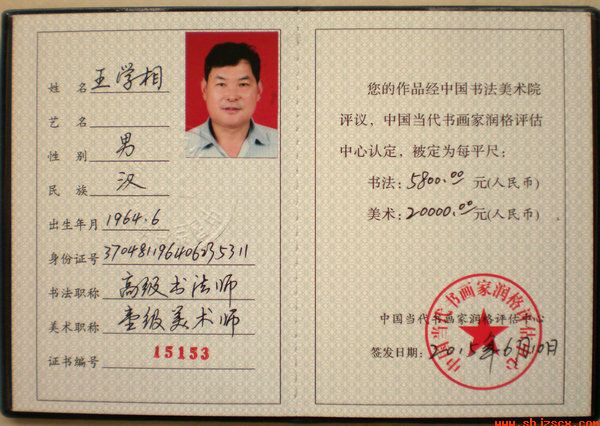 姓名 王学相
艺名
性别 男
民族 汉
出生年月 1964.6
身份证号 370481196406235311
书法职称 高级书法师
美术职称 壹级美术师
证书编号 15153
您的作品经中国书法美术院
评议，中国当代书画家润格评估
中心认定，被定为每平尺：
书法：5800.00 元(人民币)
美术：20000.00 元(人民币)
中国当代书画家润格评估中心
签发日期：2015年6月10日
中国当代书画家润格评估中心